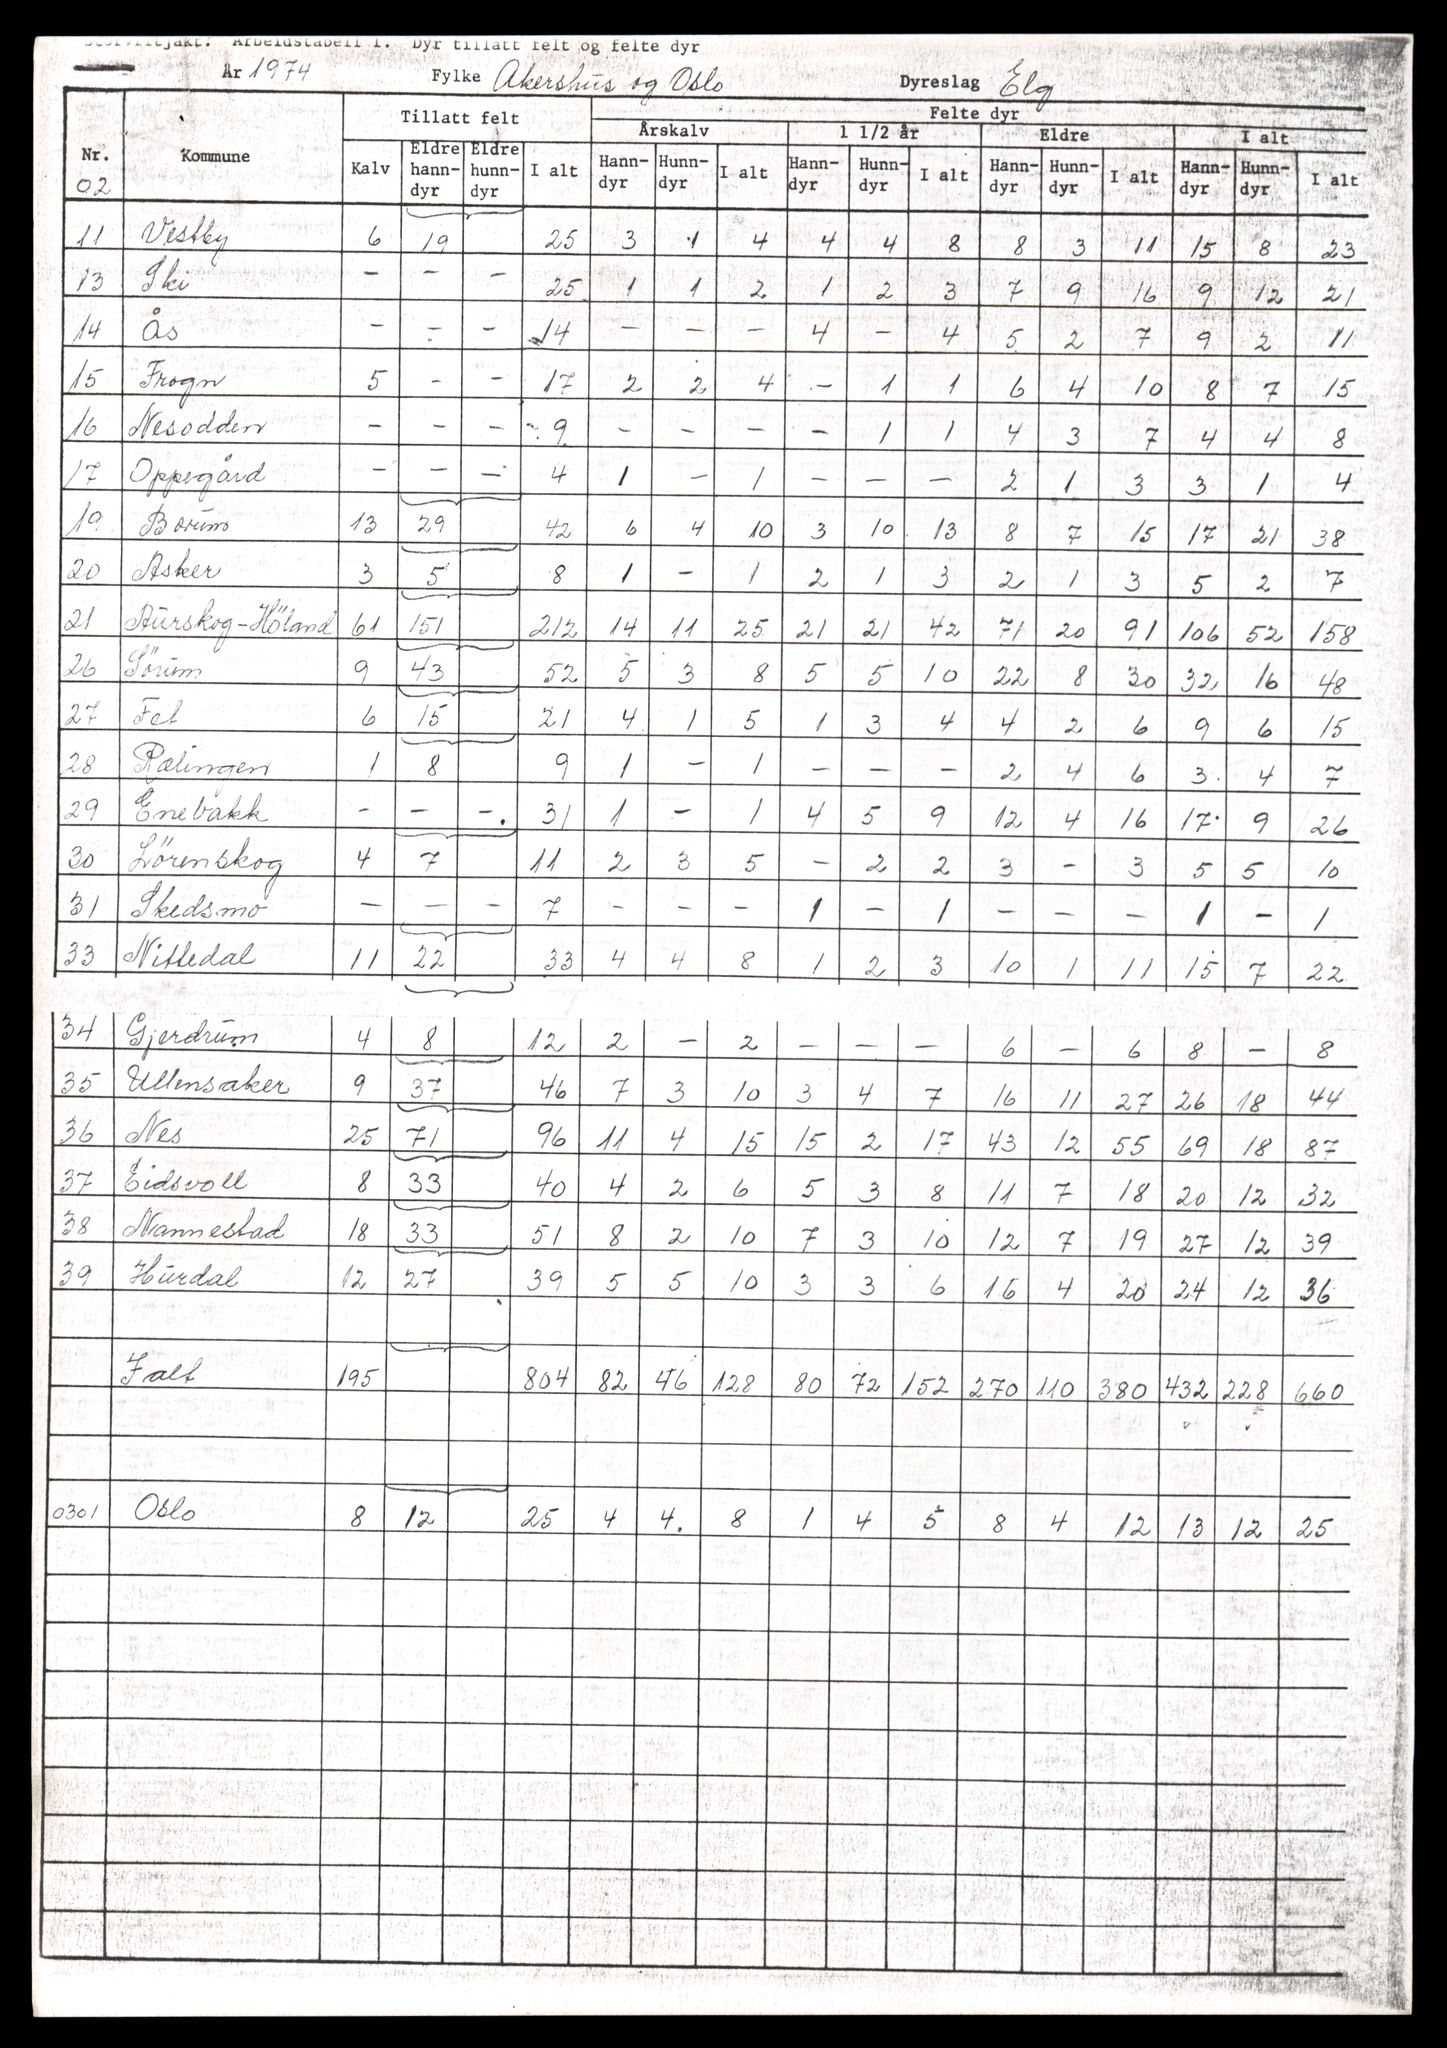 Storviltjakt. Arbeidstabell 1. Dyr tillatt felt og felte dyr
År 1974 Fylke Akershus og Oslo Dyreslag Elg
Tillatt felt Felte dyr
Årskalv 1 1/2 år Eldre I alt
Nr. 02 Kommune Kalv Eldre hann-dyr Eldre hunn-dyr I alt Hann-dyr Hunn-dyr I alt Hann-dyr Hunn-dyr I alt Hann-dyr Hunn-dyr I alt Hann-dyr Hunn-dyr I alt
11 Vestby 6 19 25 3 1 4 4 4 8 8 3 11 15 8 23
13 Ski - - - 25 1 1 2 1 2 3 7 9 16 9 12 21
14 Ås - - - 14 - - - 4 - 4 5 2 7 9 2 11
15 Frogn 5 - - 17 2 2 4 - 1 1 6 4 10 8 7 15
16 Nesodden - - - 9 - - - - 1 1 4 3 7 4 4 8
17 Oppegård - - - 4 1 - 1 - - - 2 1 3 3 1 4
19 Bærum 13 29 42 6 4 10 3 10 13 8 7 15 17 21 38
20 Asker 3 5 8 1 - 1 2 1 3 2 1 3 5 2 7
21 Aurskog-Höland 61 151 212 14 11 25 21 21 42 71 20 91 106 52 158
26 Sörum 9 43 52 5 3 8 5 5 10 22 8 30 32 16 48
27 Fet 6 15 21 4 1 5 1 3 4 4 2 6 9 6 15
28 Rælingen 1 8 9 1 - 1 - - - 2 4 6 3 4 7
29 Enebakk - - - 31 1 - 1 4 5 9 12 4 16 17 9 26
30 Lörenskog 4 7 11 2 3 5 - 2 2 3 - 3 5 5 10
31 Skedsmo - - - 7 - - - 1 - 1 - - - 1 - 1
33 Nittedal 11 22 33 4 4 8 1 2 3 10 1 11 15 7 22
34 Gjerdrum 4 8 12 2 - 2 - - - 6 - 6 8 - 8
35 Ullensaker 9 37 46 7 3 10 3 4 7 16 11 27 26 18 44
36 Nes 25 71 96 11 4 15 15 2 17 43 12 55 69 18 87
37 Eidsvoll 8 33 40 4 2 6 5 3 8 11 7 18 20 12 32
38 Nannestad 18 33 51 8 2 10 7 3 10 12 7 19 27 12 39
39 Hurdal 12 27 39 5 5 10 3 3 6 16 4 20 24 12 36
I alt 195 804 82 46 128 80 72 152 270 110 380 432 228 660
0301 Oslo 8 12 25 4 4 8 1 4 5 8 4 12 13 12 25